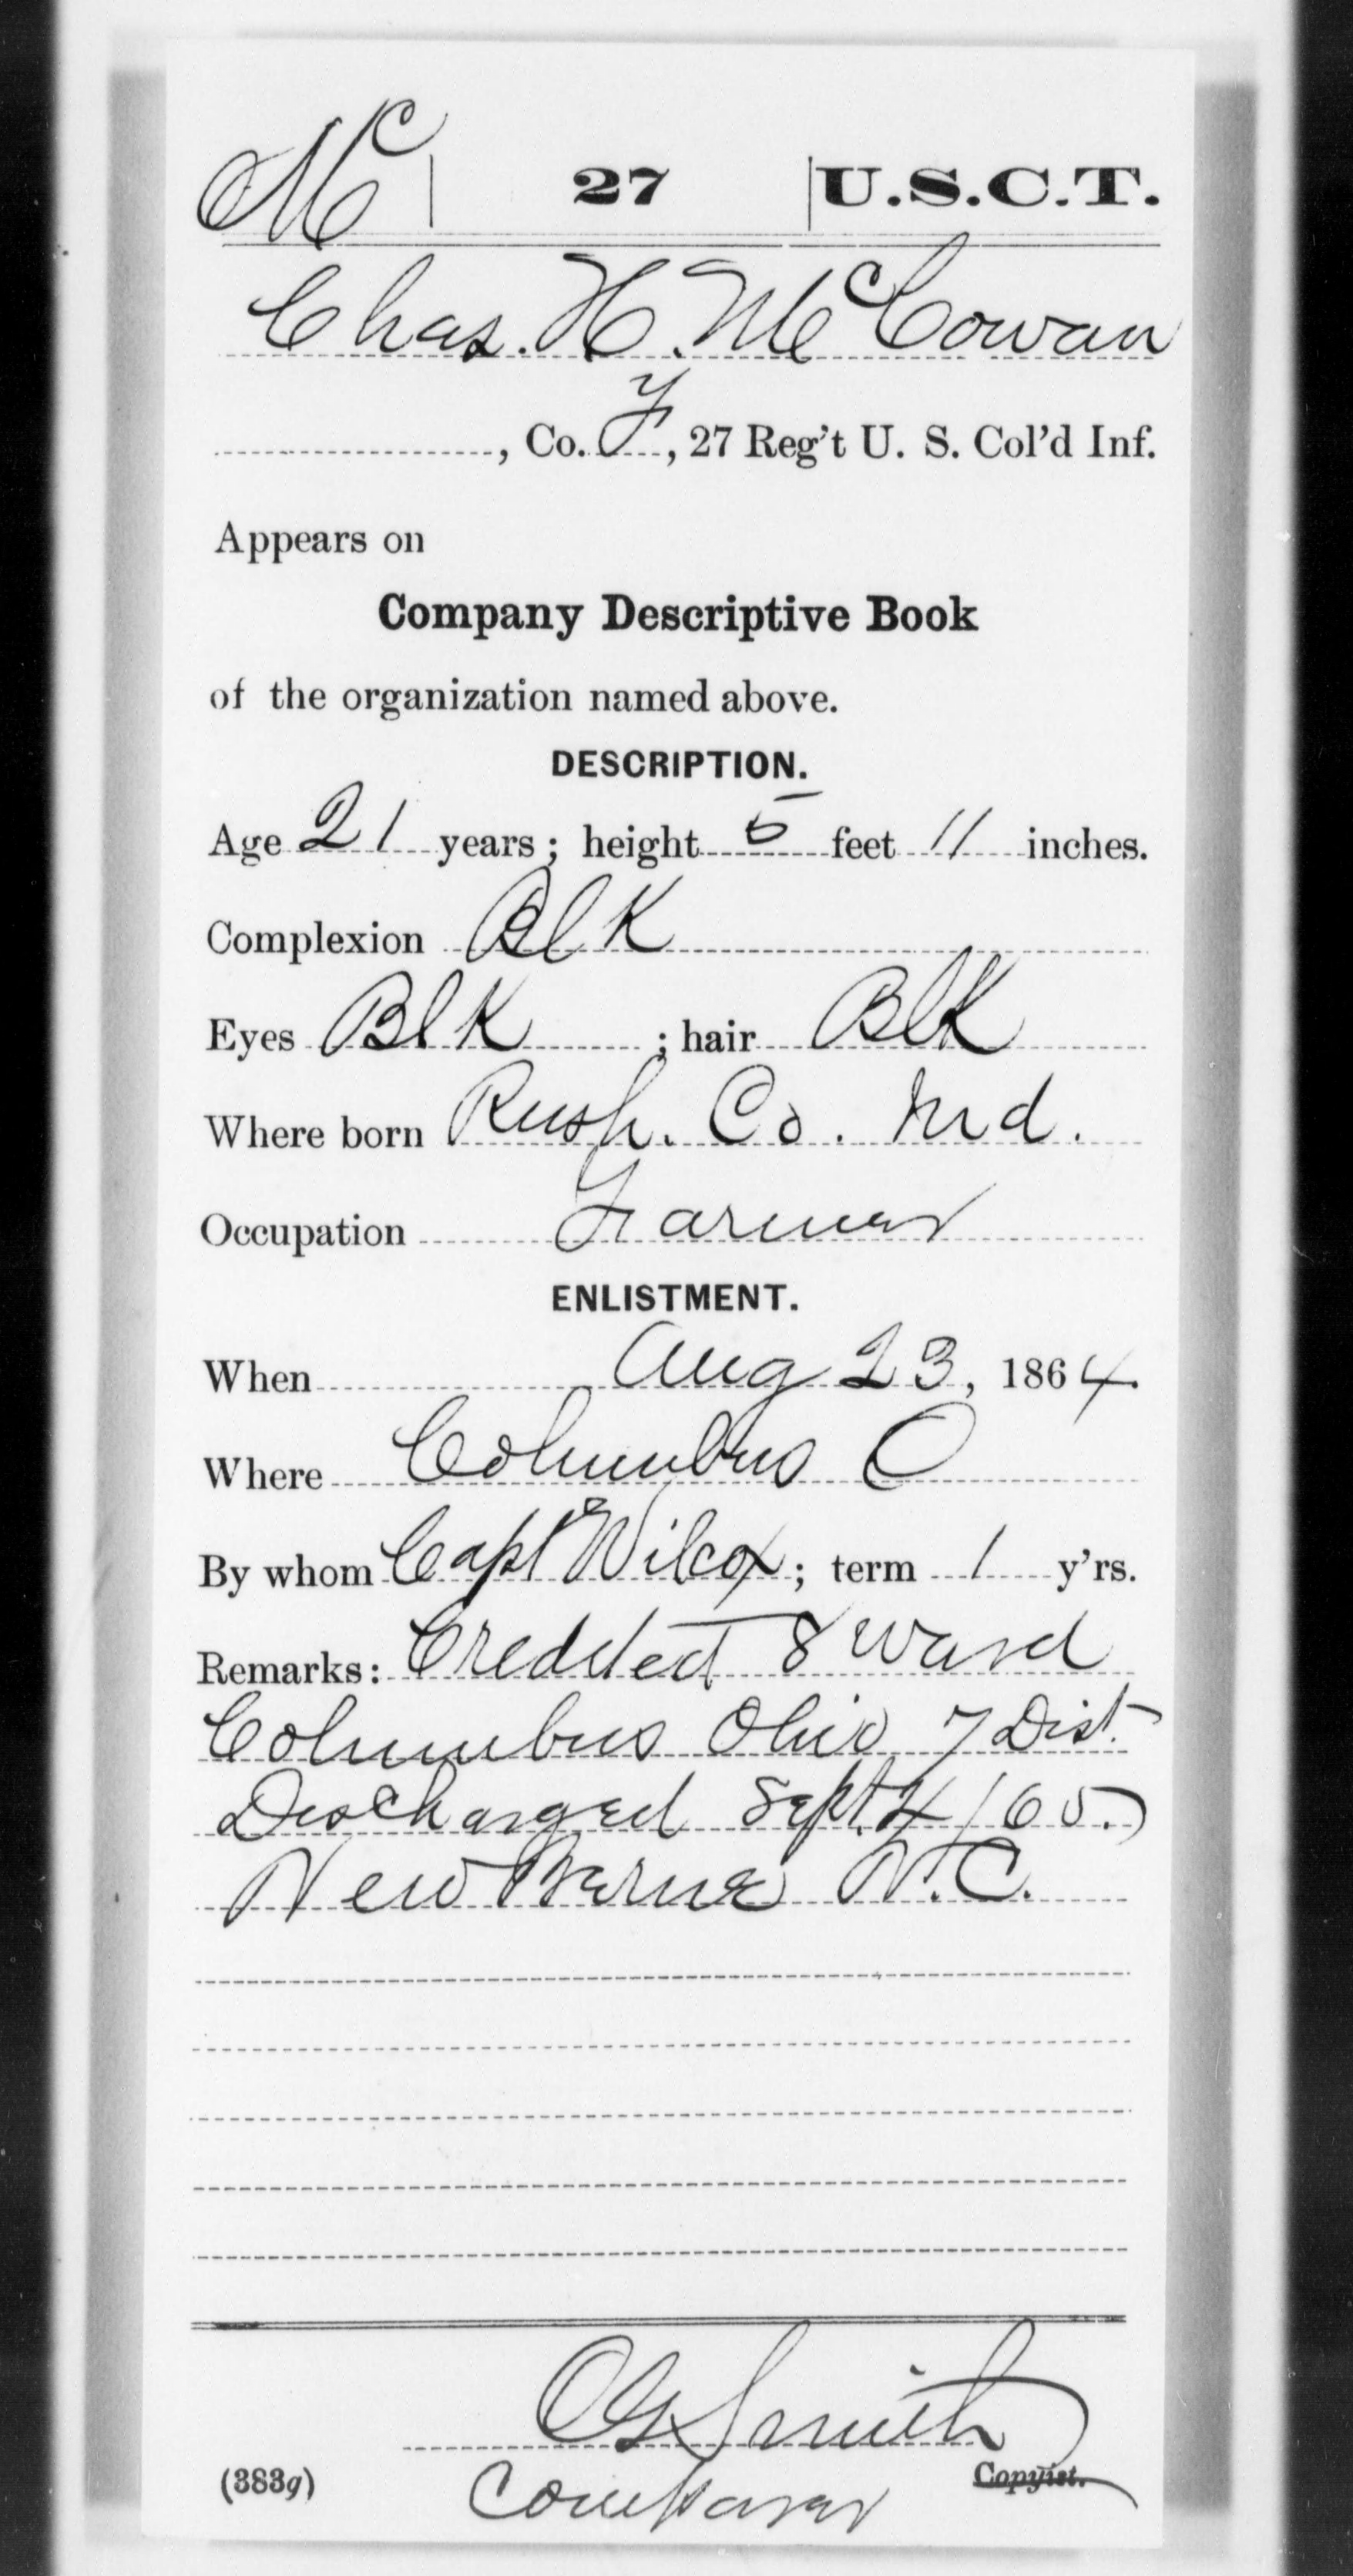 Mc | 27 | U.S.C.T.
Chas. H. McCowan
, Co. F, 27 Reg't U. S. Col'd Inf.
Appears on
Company Descriptive Book
of the organization named above.
DESCRIPTION.
Age 21 years; height 5 feet 11 inches.
Complexion Blk
Eyes Blk ; hair Blk
Where born Rush. Co. Ind.
Occupation Farmer
ENLISTMENT.
When Aug 23, 1864.
Where Columbus O
By whom Capt Wilcox; term 1 y'rs.
Remarks: Credited 8 Ward
Columbus Ohio 7 Dist.
Discharged Sept. 4/65.
New Berne N.C.
Smith
(383g) Copyist.
Comparer